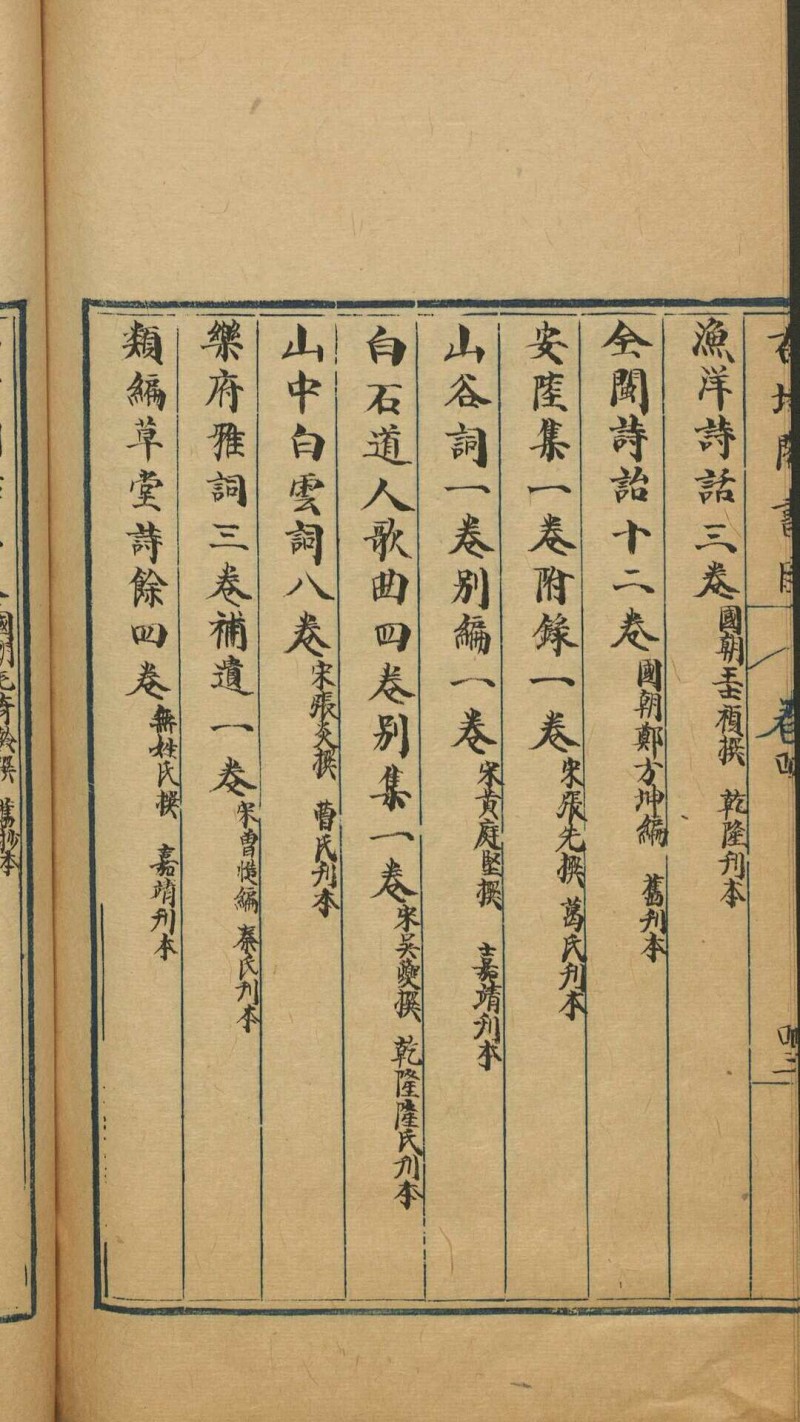 漁洋詩話三卷國朝王士禎撰 乾隆刋本
全閩詩話十二卷國朝鄭方坤編 舊刋本
安陸集一卷附錄一卷宋張先撰 葛氏刋本
山谷詞一卷別編一卷宋黃庭堅撰 嘉靖刋本
白石道人歌曲四卷別集一卷宋吳夔撰 乾隆陸氏刋本
山中白雲詞八卷宋張炎撰 曹氏刋本
樂府雅詞三卷補遺一卷宋曾慥編 秦氏刋本
類編草堂詩餘四卷無姓氏撰 嘉靖刋本
國朝毛奇齡撰 舊抄本